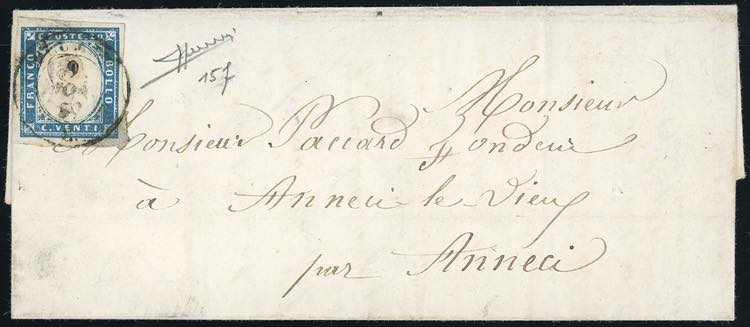 C. POSTE 20
FRANCO
BOLLO
C. VENTI
157
Monsieur
Monsieur Paccard Fondeur
à Anneci le Vieux
par Anneci